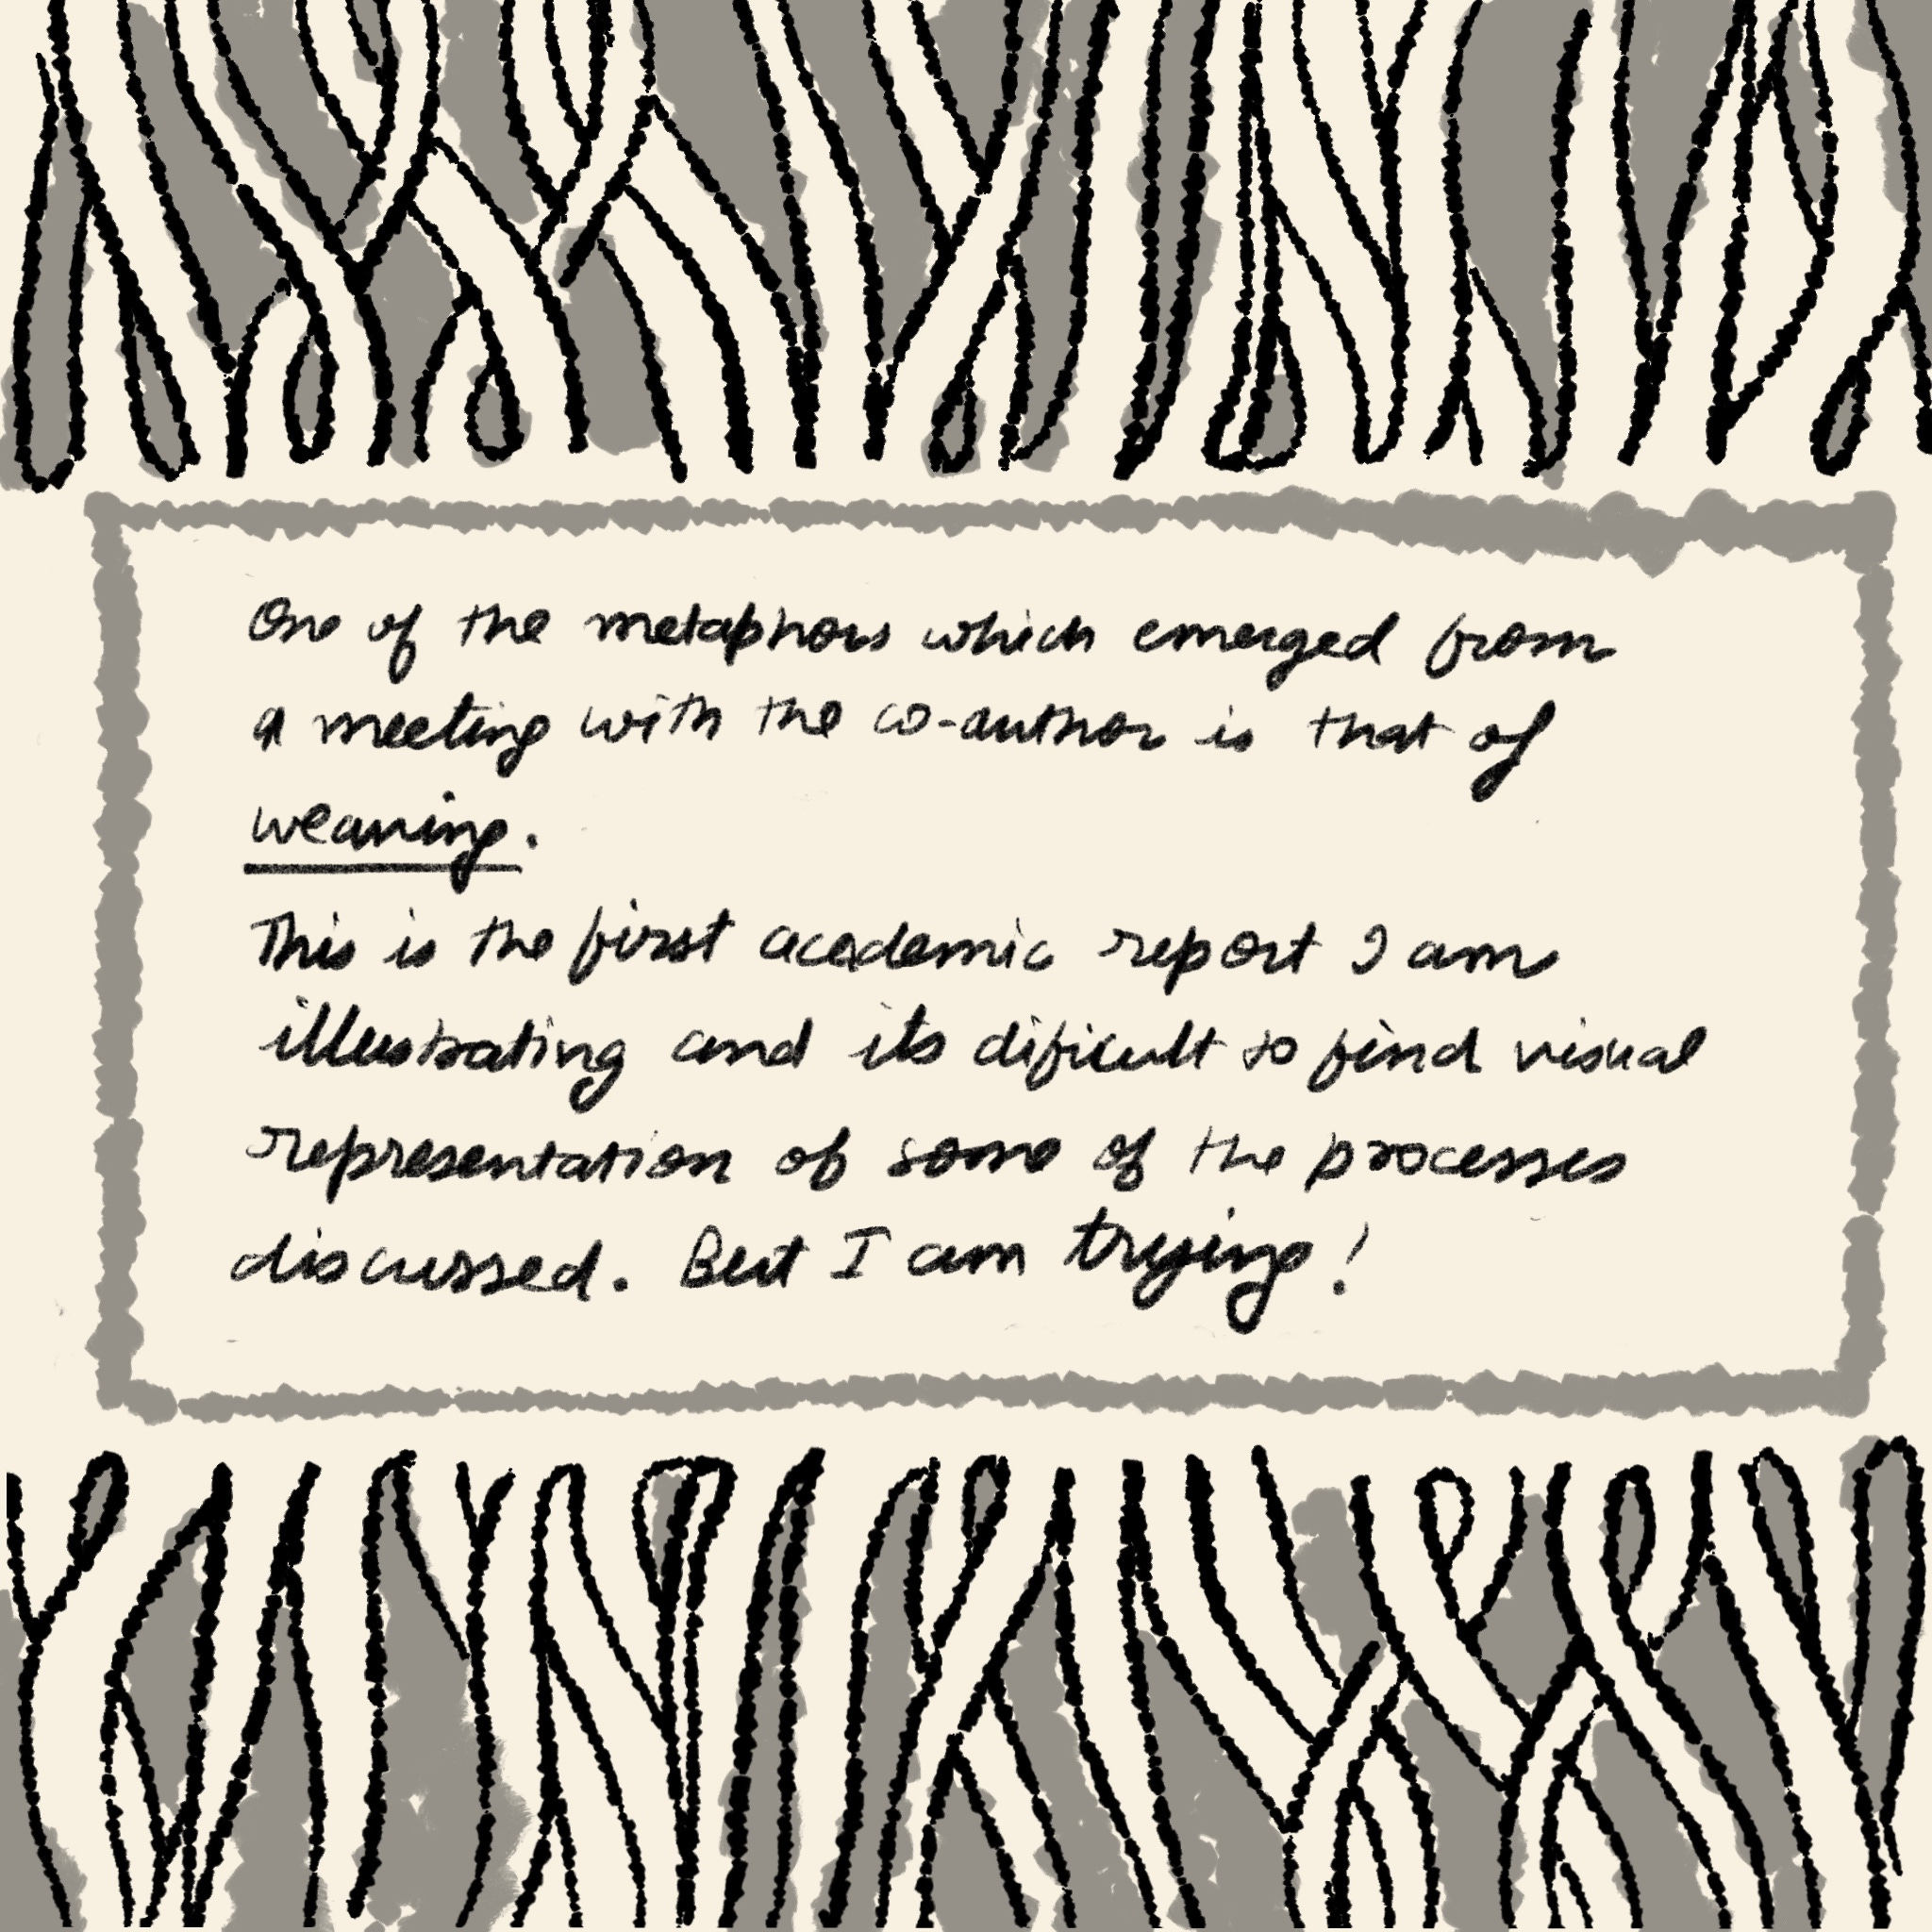 One of the metaphors which emerged from
a meeting with the co-author is that of
weaving.
This is the first academic report I am
illustrating and its dificult to find visual
representation of some of the processes
discussed. But I am trying!